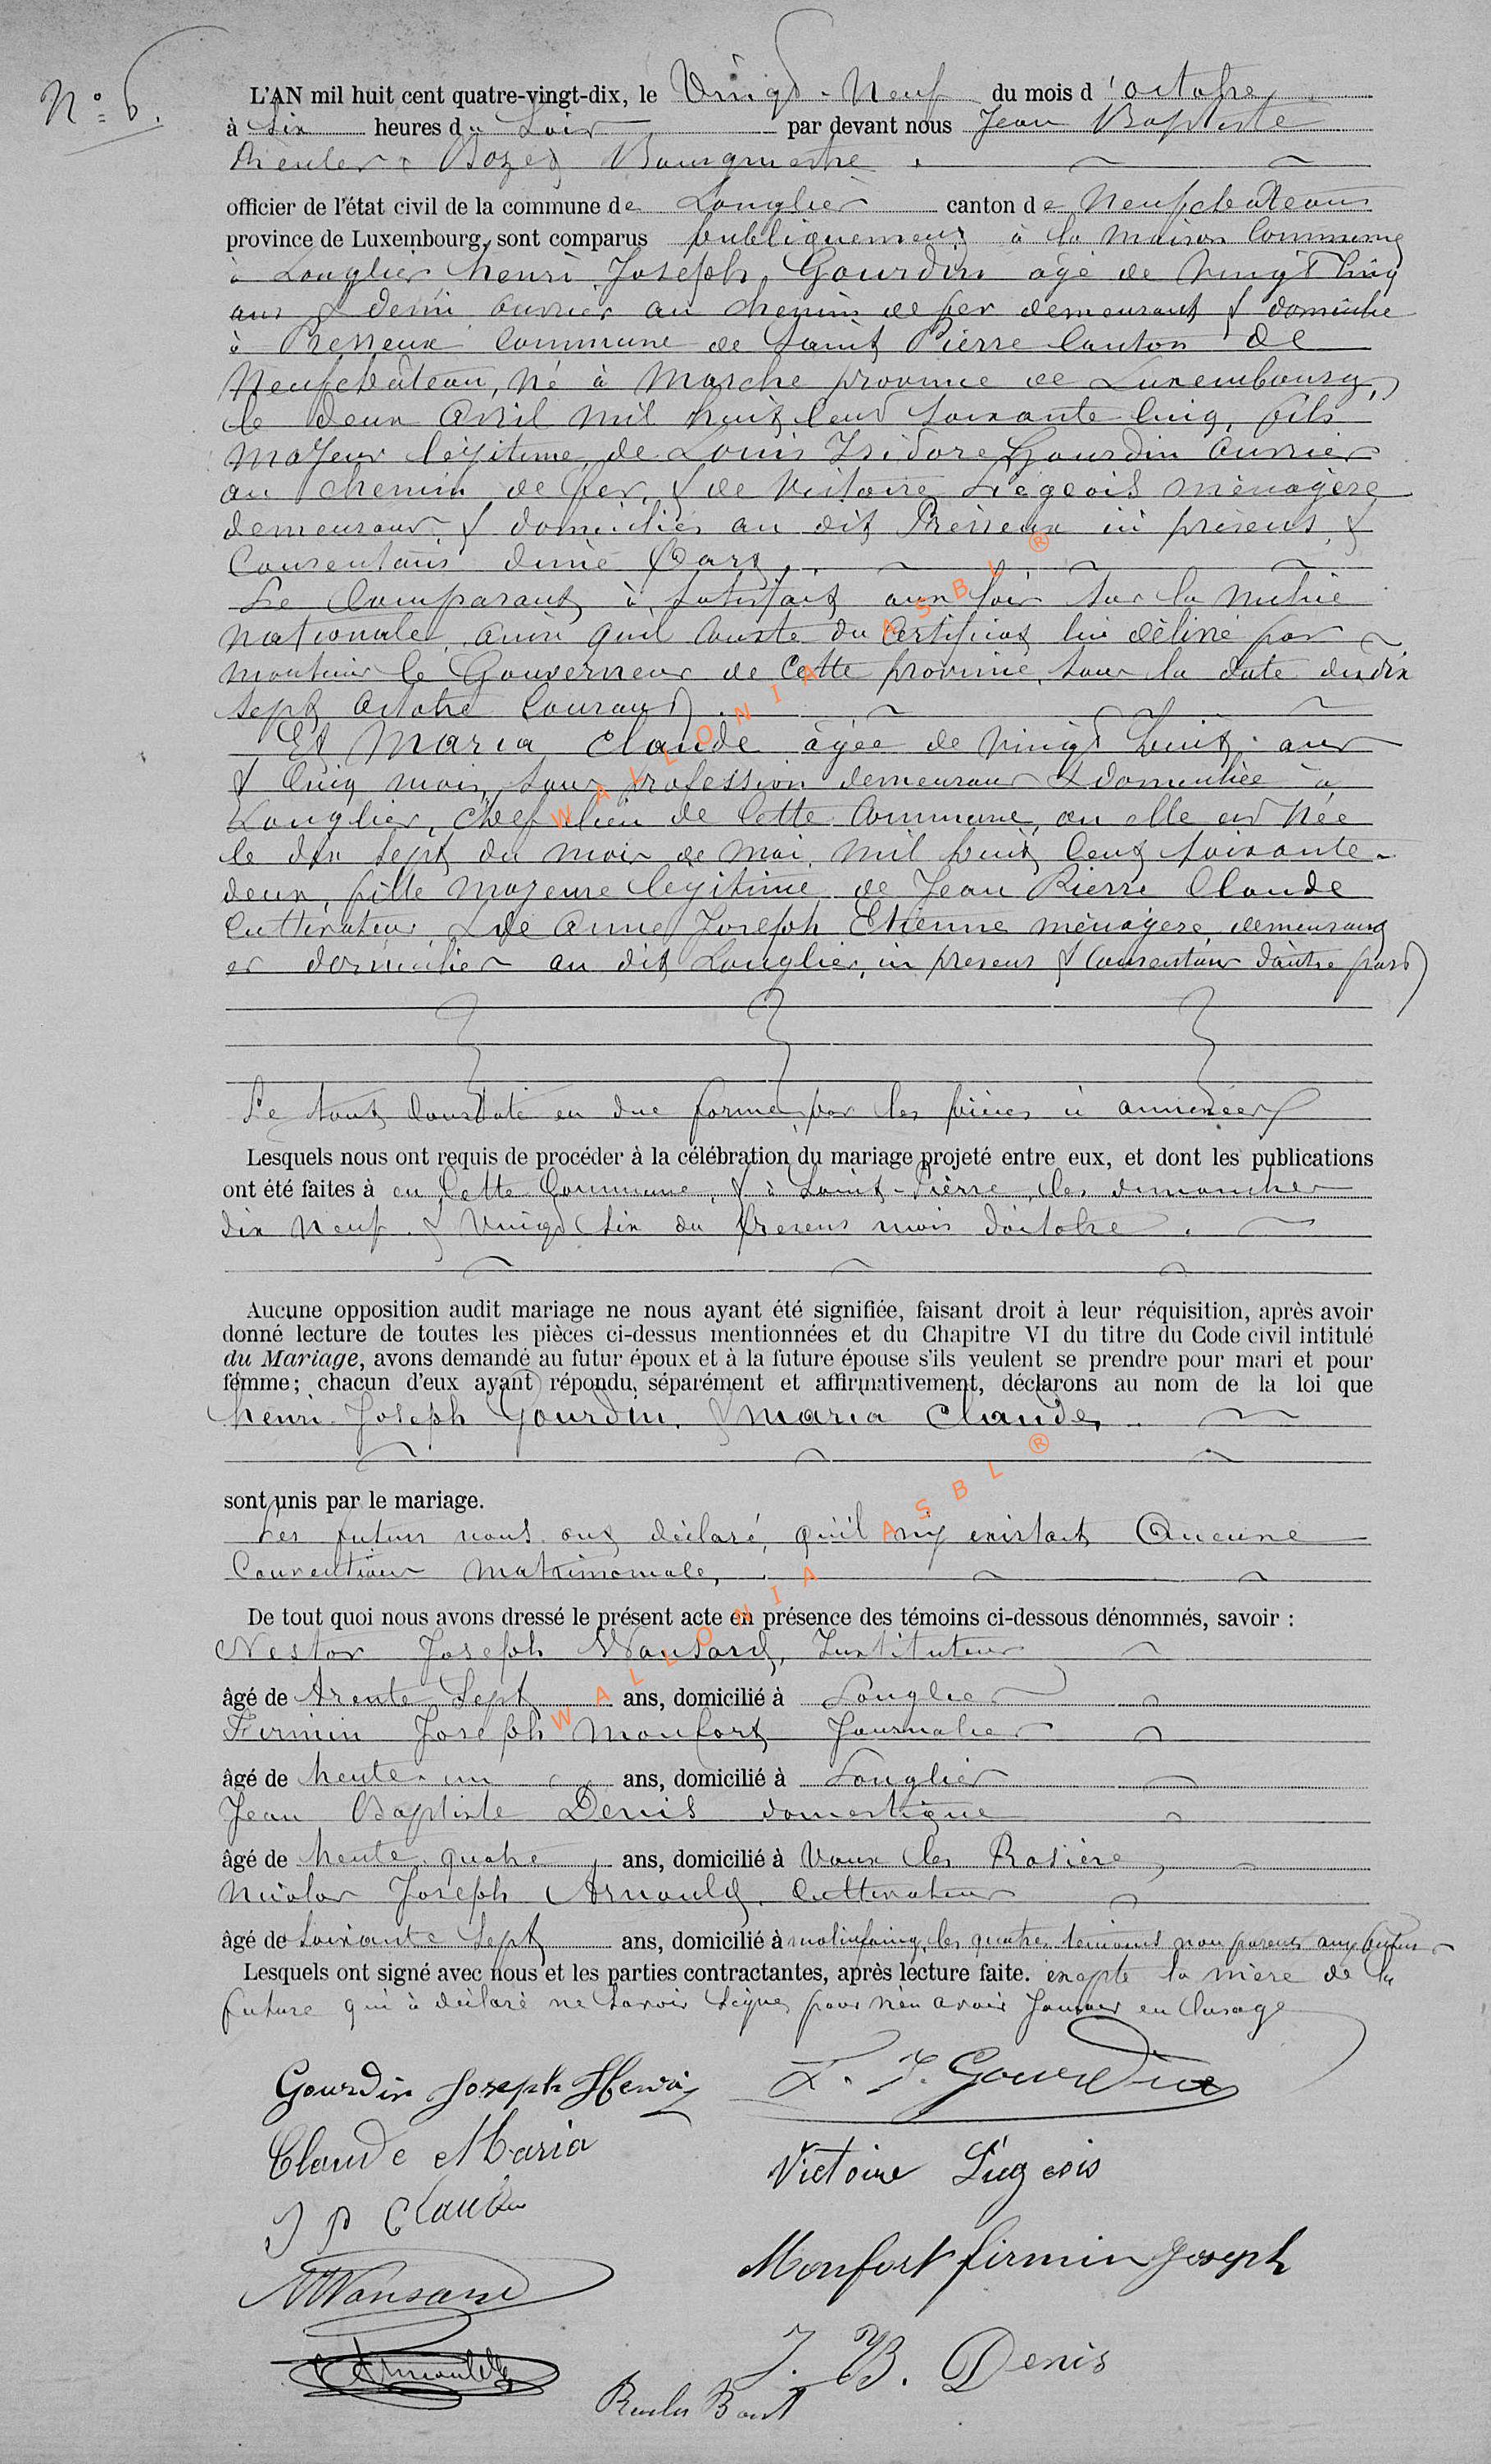 N° 6.
L'AN mil huit cent quatre-vingt-dix, le Vingt-Neuf du mois d'octobre
à Six heures du Soir par devant nous Jean Baptiste
Reuler Bozet Bourgmestre.
officier de l'état civil de la commune de Longlier canton de Neufchateau
province de Luxembourg, sont comparus publiquement à la maison Commune
à Longlier henri Joseph Gourdin agé de vingt Cinq
ans & demi ouvrier au chemin de fer demeurant & domicilié
à Presseux Commune de Saint Pierre Canton de
Neufchâteau, né à Marche province de Luxembourg,
le deux Avril mil huit Cent soixante Cinq, fils
Majeur légitime de Louis Isidore Gourdin ouvrier
au chemin de fer, & de Victoire Liégeois ménagère
demeurant & domiciliés au dit Presseux ici présens &
Consentans d'une part.
Le Comparant à satisfait aux lois sur la milice
nationale, ainsi quil Conste du Certificat lui délivré par
monsieur le Gouverneur de Cette province, sous la date du dix
sept octobre Courant.
Et Maria Claude âgée de vingt huit ans
& Cinq mois, sans profession demeurant & domiciliée à
Longlier, chef lieu de Cette Commune, ou elle est Née
le dix sept du mois de mai, mil huit Cent soixante-
deux, fille majeure légitime de Jean Pierre Claude
Cultivateur, & de Anne Joseph Etienne ménagère demeurant
et domiciliés au dit Longlier, ici présens & Consentans d'autre part
Le tout Constaté en due forme par les pièces ci annexées
Lesquels nous ont requis de procéder à la célébration du mariage projeté entre eux, et dont les publications
ont été faites à en Cette Commune, & à Saint-Pierre, les dimanches
dix neuf & Vingt Six du présent mois d'octobre.
Aucune opposition audit mariage ne nous ayant été signifiée, faisant droit à leur réquisition, après avoir
donné lecture de toutes les pièces ci-dessus mentionnées et du Chapitre VI du titre du Code civil intitulé
du Mariage, avons demandé au futur époux et à la future épouse s'ils veulent se prendre pour mari et pour
femme; chacun d'eux ayant répondu, séparément et affirmativement, déclarons au nom de la loi que
henri Joseph Gourdin. & Maria Claude,
sont unis par le mariage.
Les futurs nous ont déclaré, qu'il n'y existait Aucune
Convention Matrimoniale,
De tout quoi nous avons dressé le présent acte en présence des témoins ci-dessous dénommés, savoir :
Nestor Joseph Wansard, Instituteur
âgé de trente Sept ans, domicilié à Longlier
Firmin Joseph Monfort Journalier
âgé de trente-un ans, domicilié à Longlier
Jean Baptiste Denis domestique
âgé de trente quatre ans, domicilié à Vaux les Rosière,
Nicolas Joseph Arnould, Cultivateur
âgé de Soixante Sept ans, domicilié à molinfaing, les quatre témoins non parents aux futurs
Lesquels ont signé avec nous et les parties contractantes, après lecture faite. excepté la mère de la
future qui à déclaré ne Savoir Signer pour n'en avoir Jamais eu l'usage
Gourdin Joseph Henri L. I. Gourdin
Claude Maria
Victoire Liégeois
J P Claude
Monfort firmin Joseph
N Wansard
J. B. Denis
Arnould
WALLONIA ASBL ®
WALLONIA ASBL ®